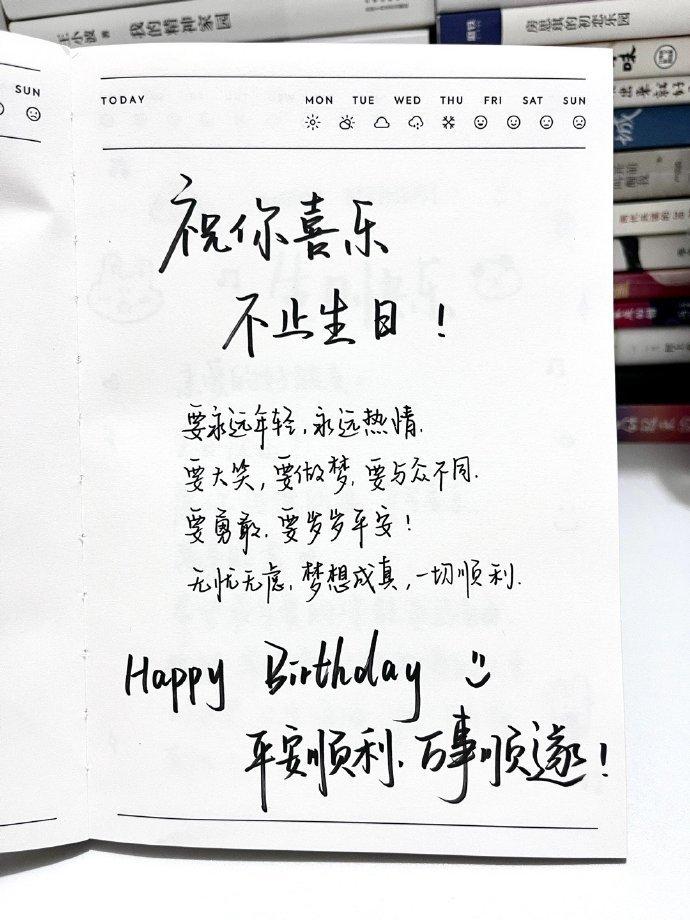 王小波 著 我的精神家园
房思琪的初恋乐园
SUN
TODAY
MON TUE WED THU FRI SAT SUN
祝你喜乐
不止生日！
要永远年轻，永远热情.
要大笑，要做梦，要与众不同.
要勇敢，要岁岁平安！
无忧无虑，梦想成真，一切顺利.
Happy Birthday
平安顺利.万事顺遂！